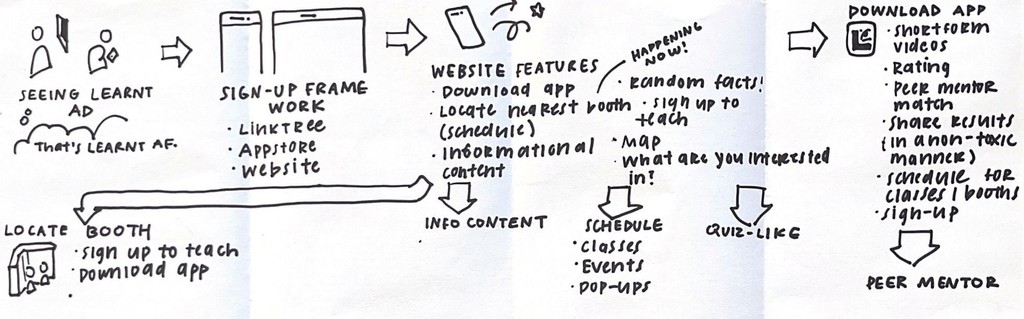 SEEING LEARNT
AD
THAT'S LEARNT AF.
SIGN-UP FRAME
WORK
• LINKTREE
• APPSTORE
• WEBSITE
WEBSITE FEATURES
• DOWNLOAD APP
• LOCATE NEAREST BOOTH
(SCHEDULE)
• INFORMATIONAL
CONTENT
HAPPENING
NOW!
• RANDOM FACTS!
• SIGN UP TO
TEACH
• MAP
• WHAT ARE YOU INTERESTED
IN?
DOWNLOAD APP
• SHORTFORM
VIDEOS
• RATING
• PEER MENTOR
MATCH
• SHARE RESULTS
(IN A NON-TOXIC
MANNER)
• SCHEDULE FOR
CLASSES / BOOTHS
• SIGN-UP
LOCATE BOOTH
• SIGN UP TO TEACH
• DOWNLOAD APP
•
INFO CONTENT
SCHEDULE
• CLASSES
• EVENTS
• POP-UPS
QUIZ-LIKE
PEER MENTOR